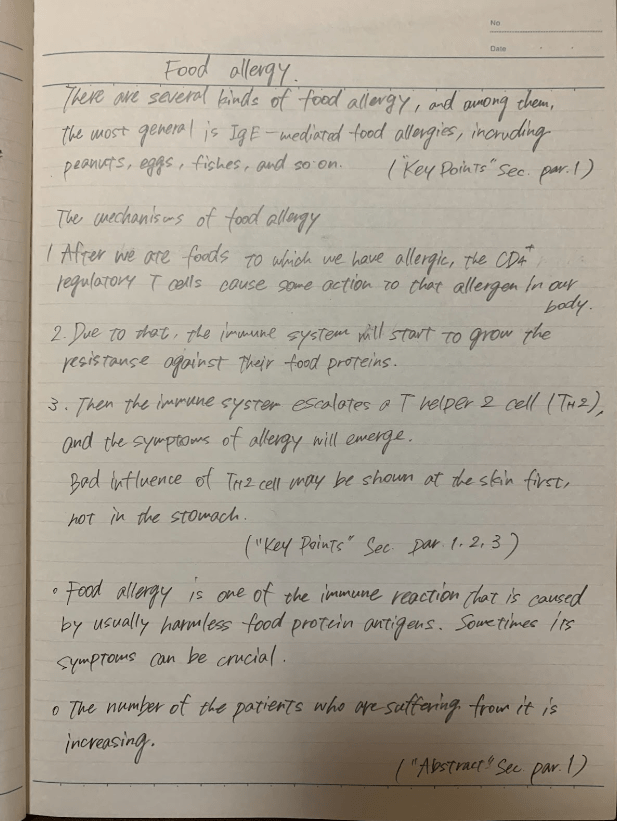 No.
Date
Food allergy.
There are several kinds of food allergy, and among them,
the most general is IgE-mediated food allergies, incruding
peanuts, eggs, fishes, and so on. ("Key Points" Sec. par. 1)
The mechanisms of food allergy
1 After we ate foods to which we have allergic, the CD4+
regulatory T cells cause some action to that allergen in our
body.
2. Due to that, the immune system will start to grow the
resistanse against their food proteins.
3. Then the immune system escalates a T helper 2 cell (TH2),
and the symptoms of allergy will emerge.
Bad influence of TH2 cell may be shown at the skin first,
not in the stomach.
("Key Points" Sec. par. 1. 2. 3)
◦ Food allergy is one of the immune reaction that is caused
by usually harmless food protein antigens. Sometimes its
symptoms can be crucial.
◦ The number of the patients who are suffering from it is
increasing.
("Abstract" Sec. par. 1)